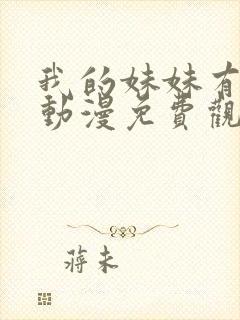 我的妹妹有
動漫免費觀
蔣未